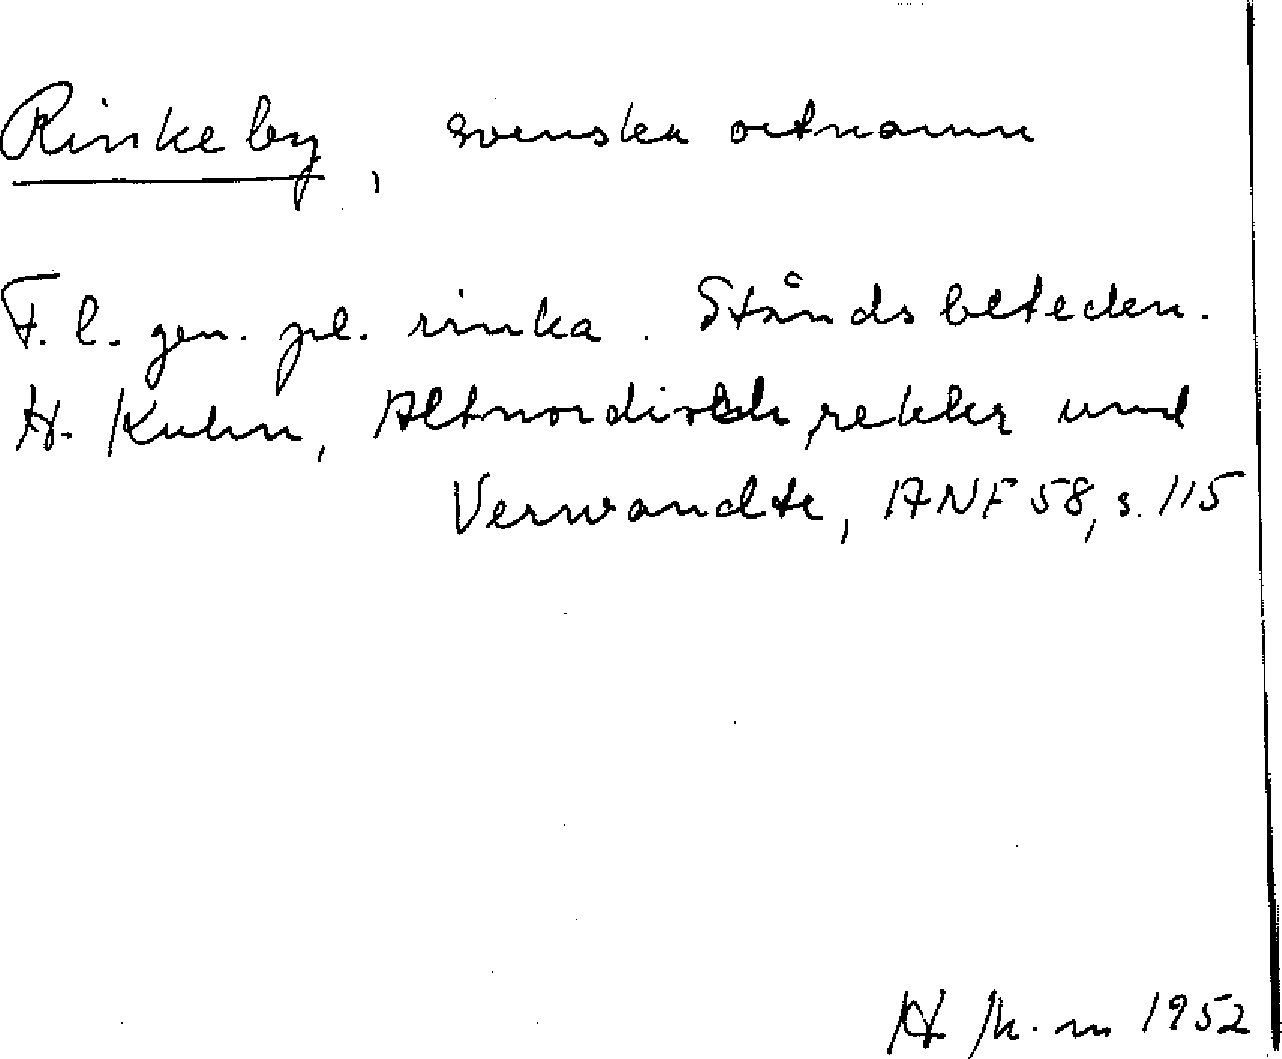 Rinkeby, svenska ortnamn
F. l. gen. pl. rinka. Ståndsbeteckn.
H. Kuhn, Altnordisch rekkr und
Verwandte, ANF 58, s. 115
1952